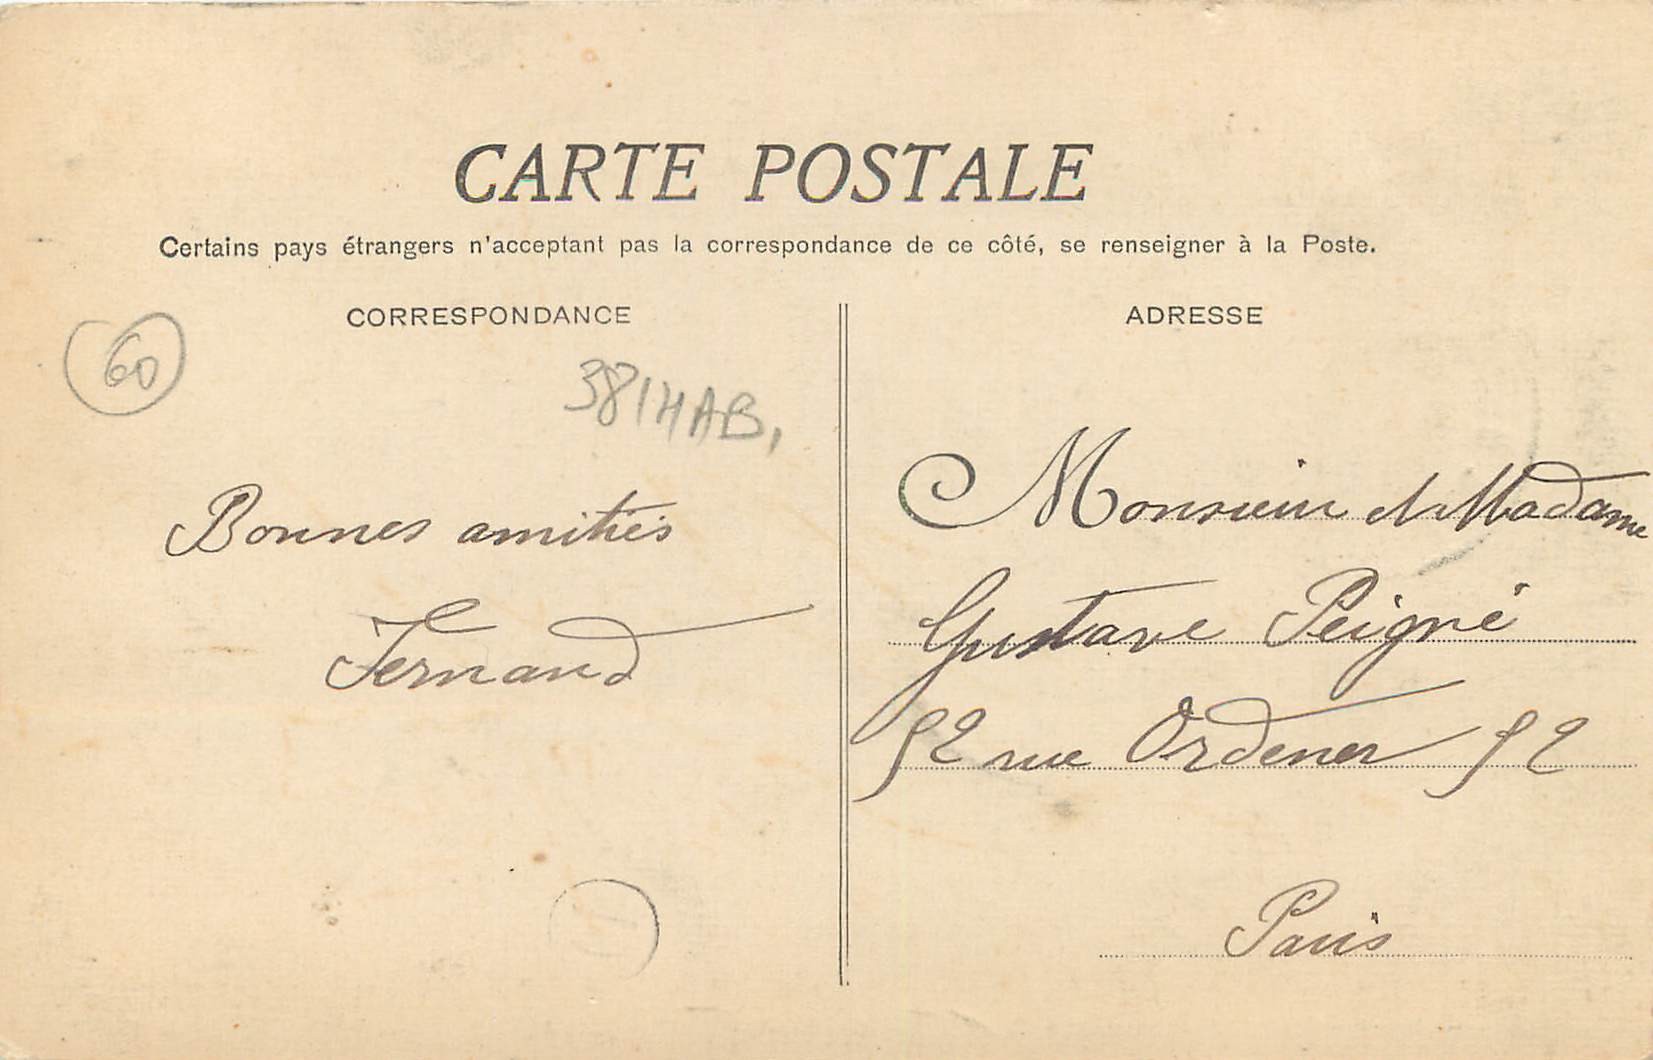 CARTE POSTALE
Certains pays étrangers n'acceptant pas la correspondance de ce côté, se renseigner à la Poste.
CORRESPONDANCE
60
3814AB,
Bonnes amitiés
Fernand
ADRESSE
Monsieur et Madame
Gustave Peigné
52 rue Ordener 52
Paris